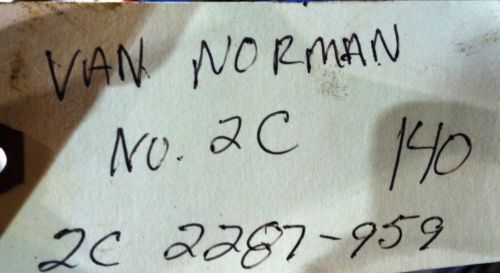 VAN NORMAN
NO. 2C 140
2C 2287-959